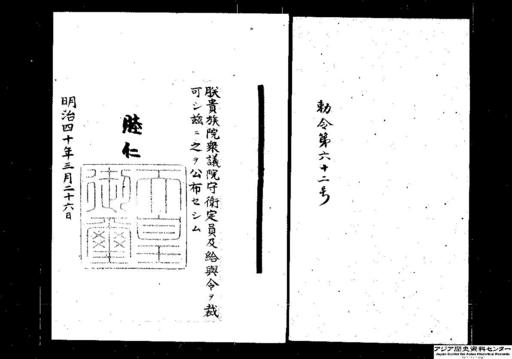 勅令第六十二号
朕貴族院衆議院守衛定員及給與令ヲ裁
可シ茲ニ之ヲ公布セシム
睦仁
天皇
御璽
明治四十年三月二十六日
アジア歴史資料センター
Japan Center for Asian Historical Records